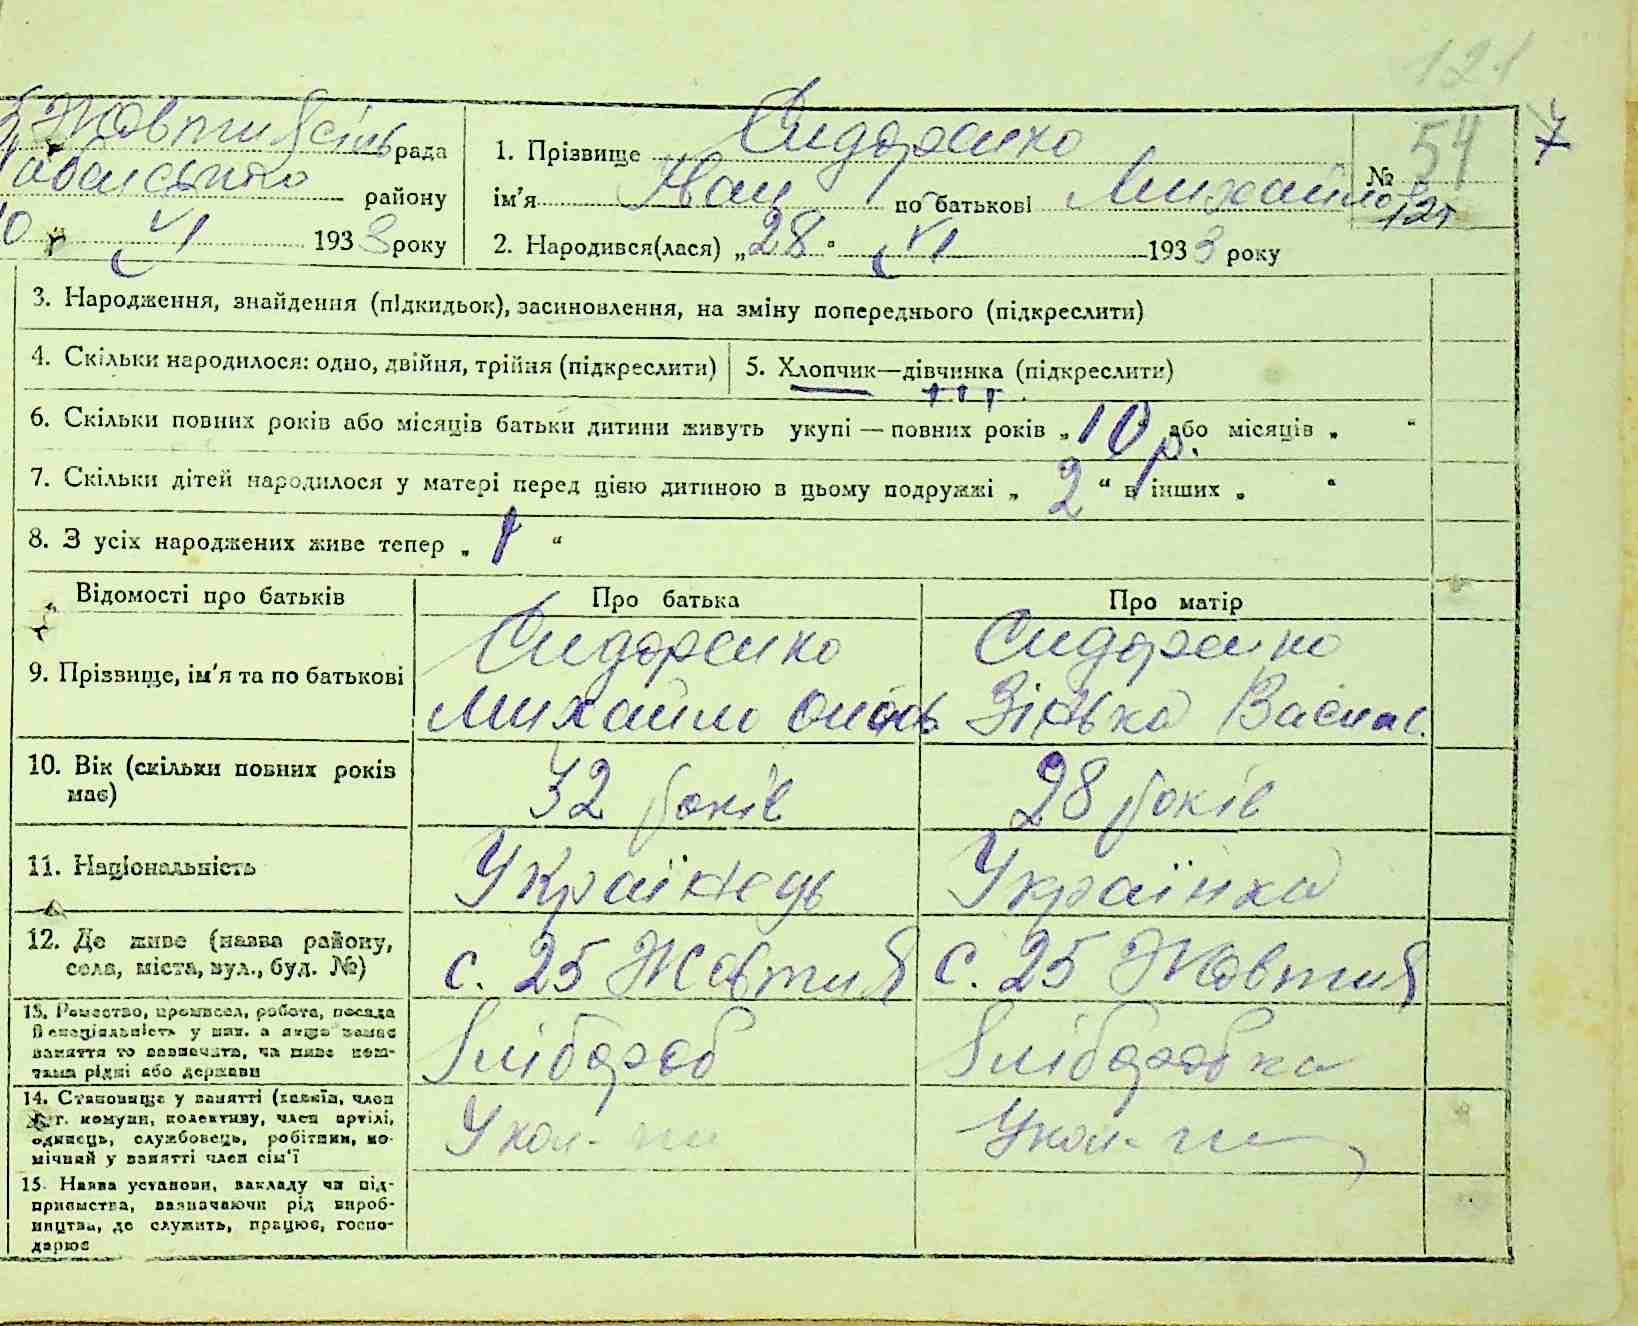 121
Жовтнясіль рада
1. Прізвище Сидоренко
№ 54
7
району
ім'я Іван по батькові Михайло
121
VI 1933 року
2. Народився(лася) „28" VI 1933 року
3. Народження, знайдення (підкидьок), засиновлення, на зміну попереднього (підкреслити)
4. Скільки народилося: одно, двійня, трійня (підкреслити)
5. Хлопчик—дівчинка (підкреслити)
6. Скільки повних років або місяців батьки дитини живуть укупі — повних років „10 р. або місяців „ "
7. Скільки дітей народилося у матері перед цією дитиною в цьому подружжі „ 2 " в інших „ "
8. З усіх народжених живе тепер „ 1 "
Відомості про батьків
Про батька
Про матір
9. Прізвище, ім'я та по батькові
Сидоренко
Михайло
Сидоренко
Зінька Васил.
10. Вік (скільки повних років
має)
32 років
28 років
11. Національність
Українець
Українка
12. Де живе (назва району,
села, міста, вул., буд. №)
с. 25 Жовтня
с. 25 Жовтня
13. Ремество, промисел, робота, посада
й спеціяльність у нин. а якщо немає
заняття то зазначити, чи живе кош-
тами рідні або держави
Хлібороб
Хліборобка
14. Становище у занятті (хазяїн, член
с.-г. комуни, колективу, член артілі,
одинець, службовець, робітник, по-
мічний у занятті член сім'ї
У кол-
У кол-
15. Назва установи, закладу чи під-
приємства, зазначаючи рід вироб-
ництва, де служить, працює, госпо-
дарює